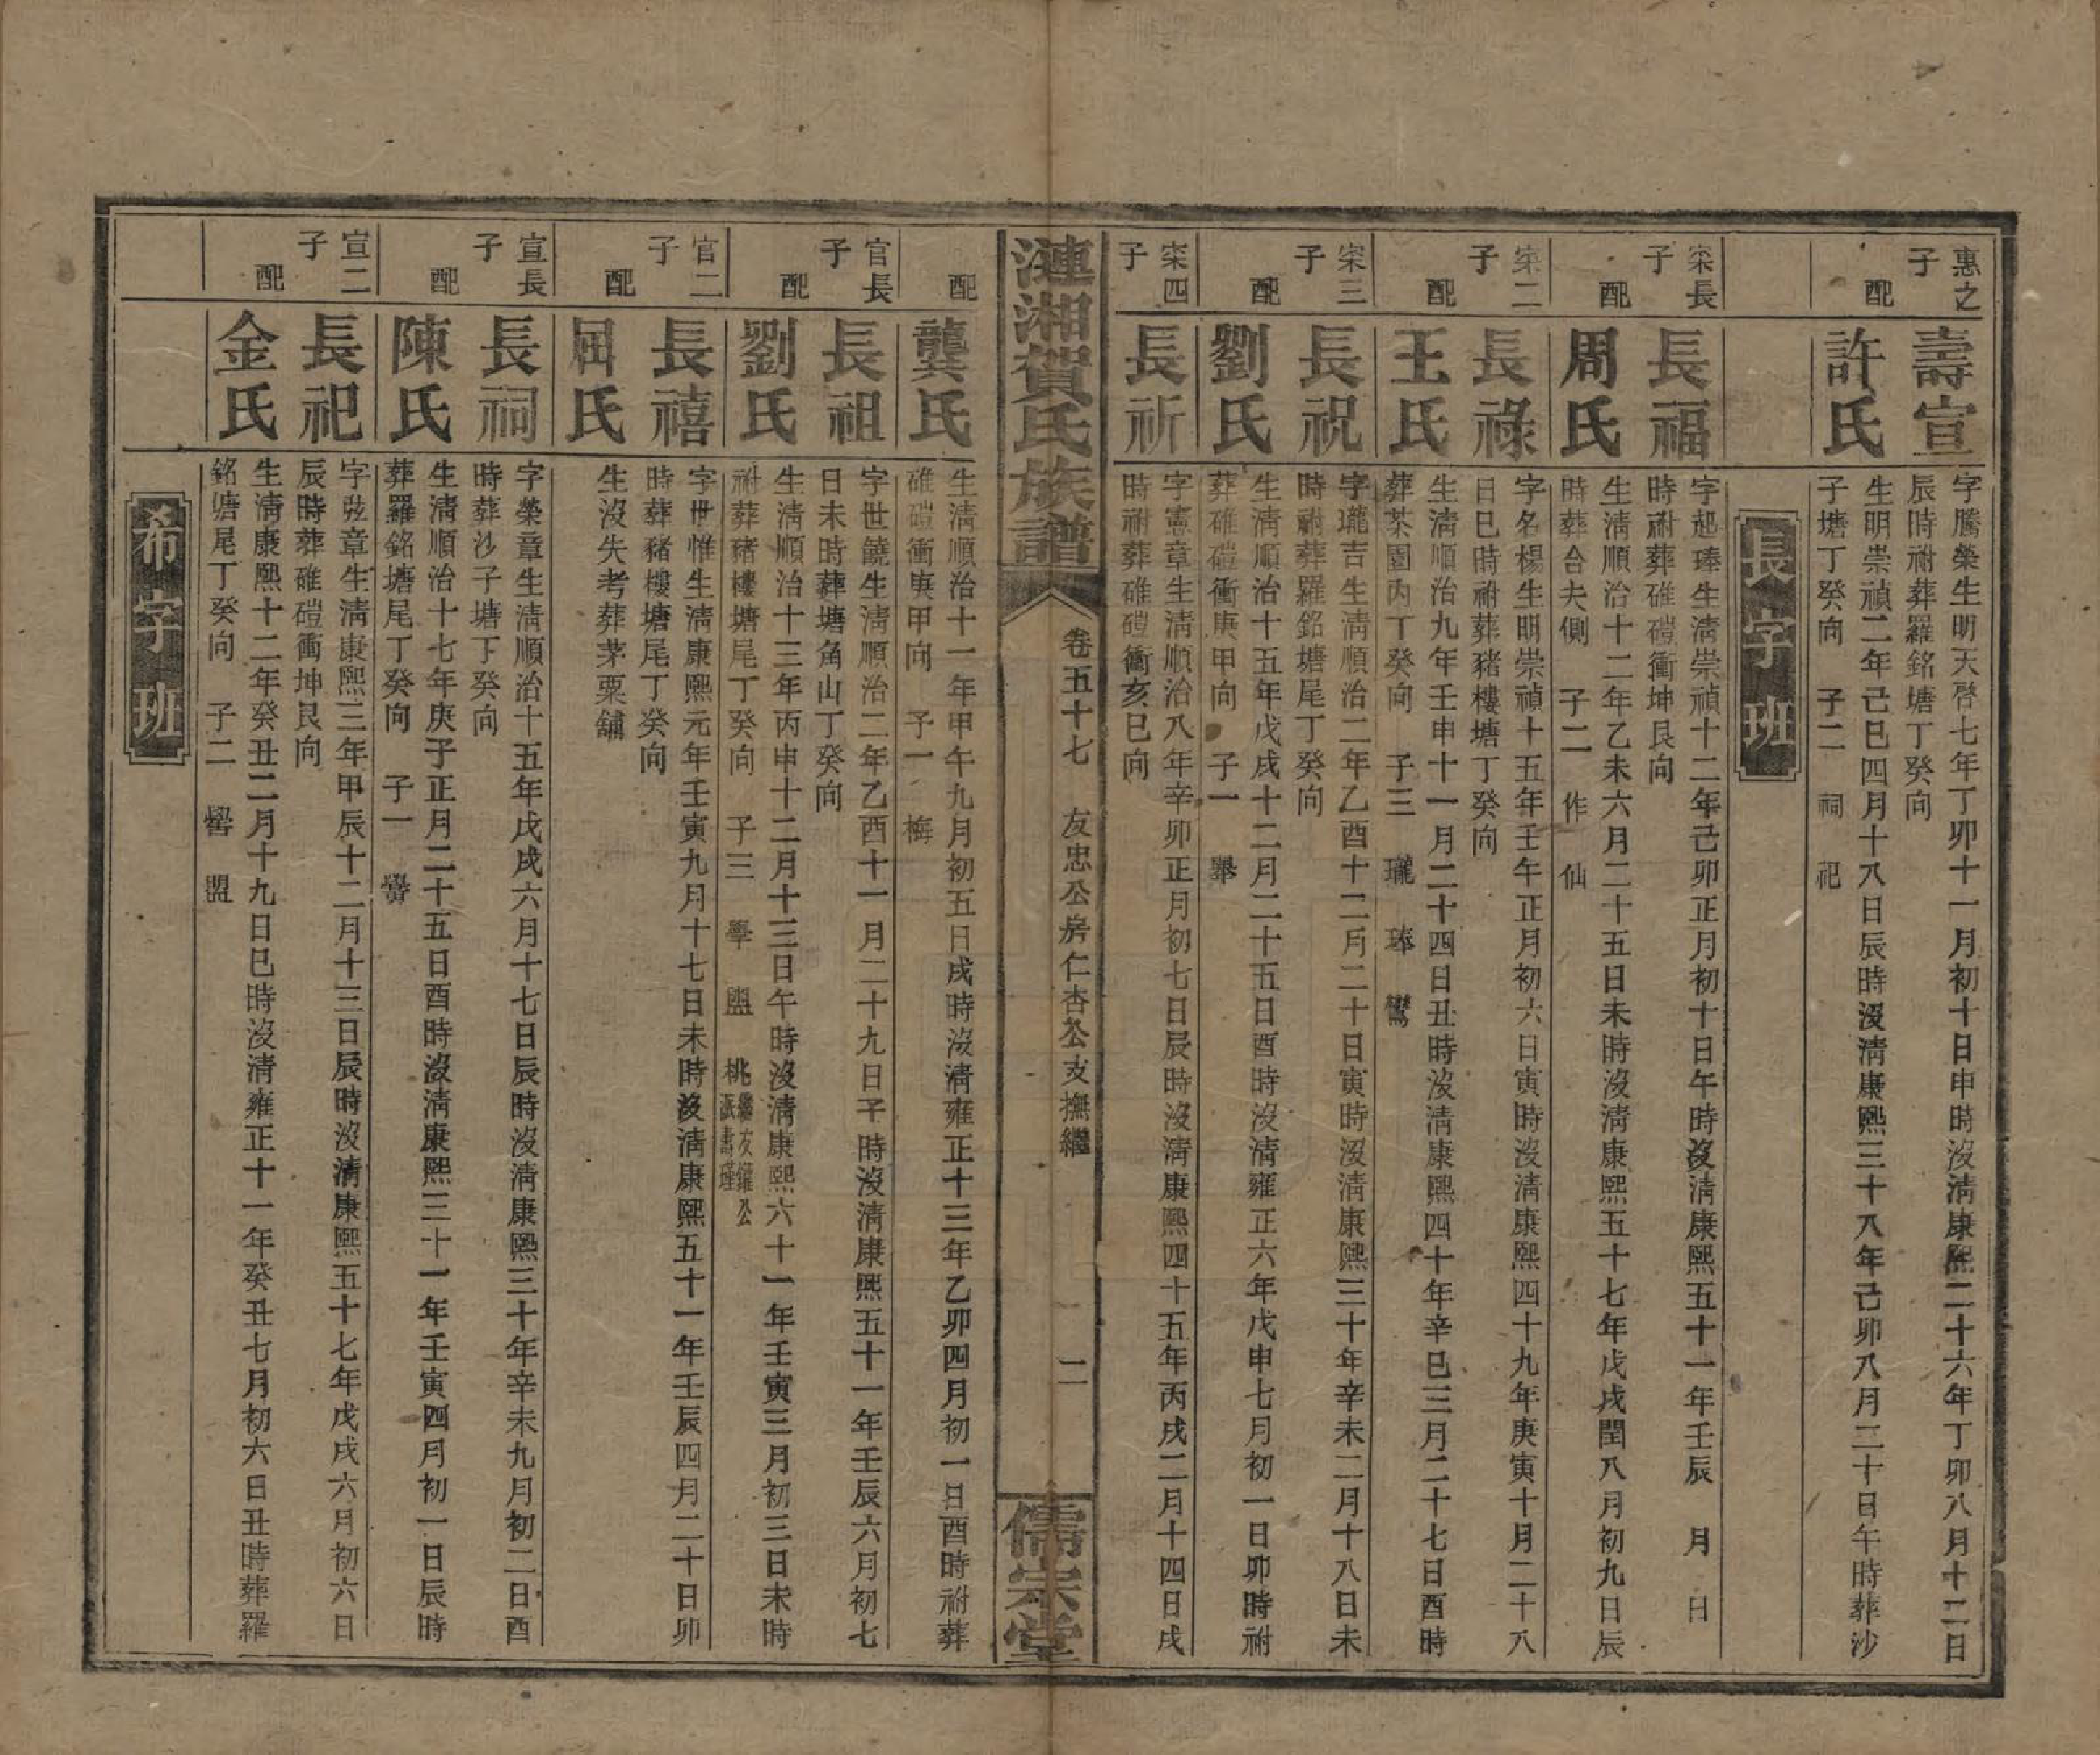 惠之子
壽宣
字騰榮生明天啓七年丁卯十一月初十日申時沒淸康熙二十六年丁卯八月十二日
辰時祔葬羅銘塘丁癸向
配
許氏
生明崇禎二年己巳四月十八日辰時沒淸康熙三十八年己卯八月二十日午時葬沙
子塘丁癸向 子二 祠 祀
長字班
寀長子
長福
字起瑧生淸崇禎十二年己卯正月初十日午時沒淸康熙五十一年壬辰 月 日
時祔葬碓磑衝坤艮向
配
周氏
生淸順治十二年乙未六月二十五日未時沒淸康熙五十七年戊戌閏八月初九日辰
時葬台夫側 子二 作 仙
寀二子
長祿
字名楊生明崇禎十五年壬午正月初六日寅時沒淸康熙四十九年庚寅十月二十八
日巳時祔葬豬樓塘丁癸向
配
王氏
生淸順治九年壬申十一月二十四日丑時沒淸康熙四十年辛巳三月二十七日酉時
葬茶園內丁癸向 子三 瓏 瑧 鸞
寀三子
長祝
字瓏吉生淸順治二年乙酉十二月二十日寅時沒淸康熙三十年辛未二月十八日未
時祔葬羅銘塘尾丁癸向
配
劉氏
生淸順治十五年戊戌十二月二十五日酉時沒淸雍正六年戊申七月初一日卯時祔
葬碓磑衝庚甲向 子一 舉
寀四子
長祈
字憲章生淸順治八年辛卯正月初七日辰時沒淸康熙四十五年丙戌二月十四日戌
時祔葬碓磑衝亥巳向
漣湘賀氏族譜
卷五十七 友忠公房仁杏公支撫繼
二
儒宗堂
配
龔氏
生淸順治十一年甲午九月初五日戌時沒淸雍正十三年乙卯四月初一日酉時祔葬
碓磑衝庚甲向 子一 梅
官長子
長祖
字世鐃生淸順治二年乙酉十一月二十九日子時沒淸康熙五十一年壬辰六月初七
日未時葬塘角山丁癸向
配
劉氏
生淸順治十三年丙申十二月十三日午時沒淸康熙六十一年壬寅三月初三日未時
祔葬豬樓塘尾丁癸向 子三 學 盥 桃繼友鑵公派壽瑾
官二子
長禧
字世惟生淸康熙元年壬寅九月十七日未時沒淸康熙五十一年壬辰四月二十日卯
時葬豬樓塘尾丁癸向
配
屈氏
生沒失考葬茅粟舖
宣長子
長祠
字榮章生淸順治十五年戊戌六月十七日辰時沒淸康熙三十年辛未九月初二日酉
時葬沙子塘下癸向
配
陳氏
生淸順治十七年庚子正月二十五日酉時沒淸康熙三十一年壬寅四月初一日辰時
葬羅銘塘尾丁癸向 子一 黌
宣二子
長祀
字玆章生淸康熙三年甲辰十二月十三日辰時沒淸康熙五十七年戊戌六月初六日
辰時葬碓磑衝坤艮向
配
金氏
生淸康熙十二年癸丑二月十九日巳時沒淸雍正十一年癸丑七月初六日丑時葬羅
銘塘尾丁癸向 子二 礐 盟
希字班